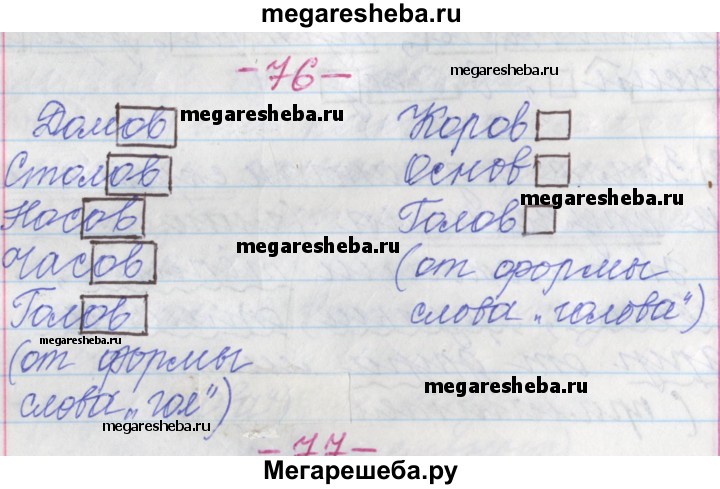 megaresheba.ru
-76-
megaresheba.ru
Домов
megaresheba.ru
Столов
Носов
Часов
Голов
(от формы
слова „гол")
Коров
Основ
megaresheba.ru
Голов
(от формы
слова „голова")
megaresheba.ru
megaresheba.ru
megaresheba.ru
megaresheba.ru
-77-
Мегарешеба.ру